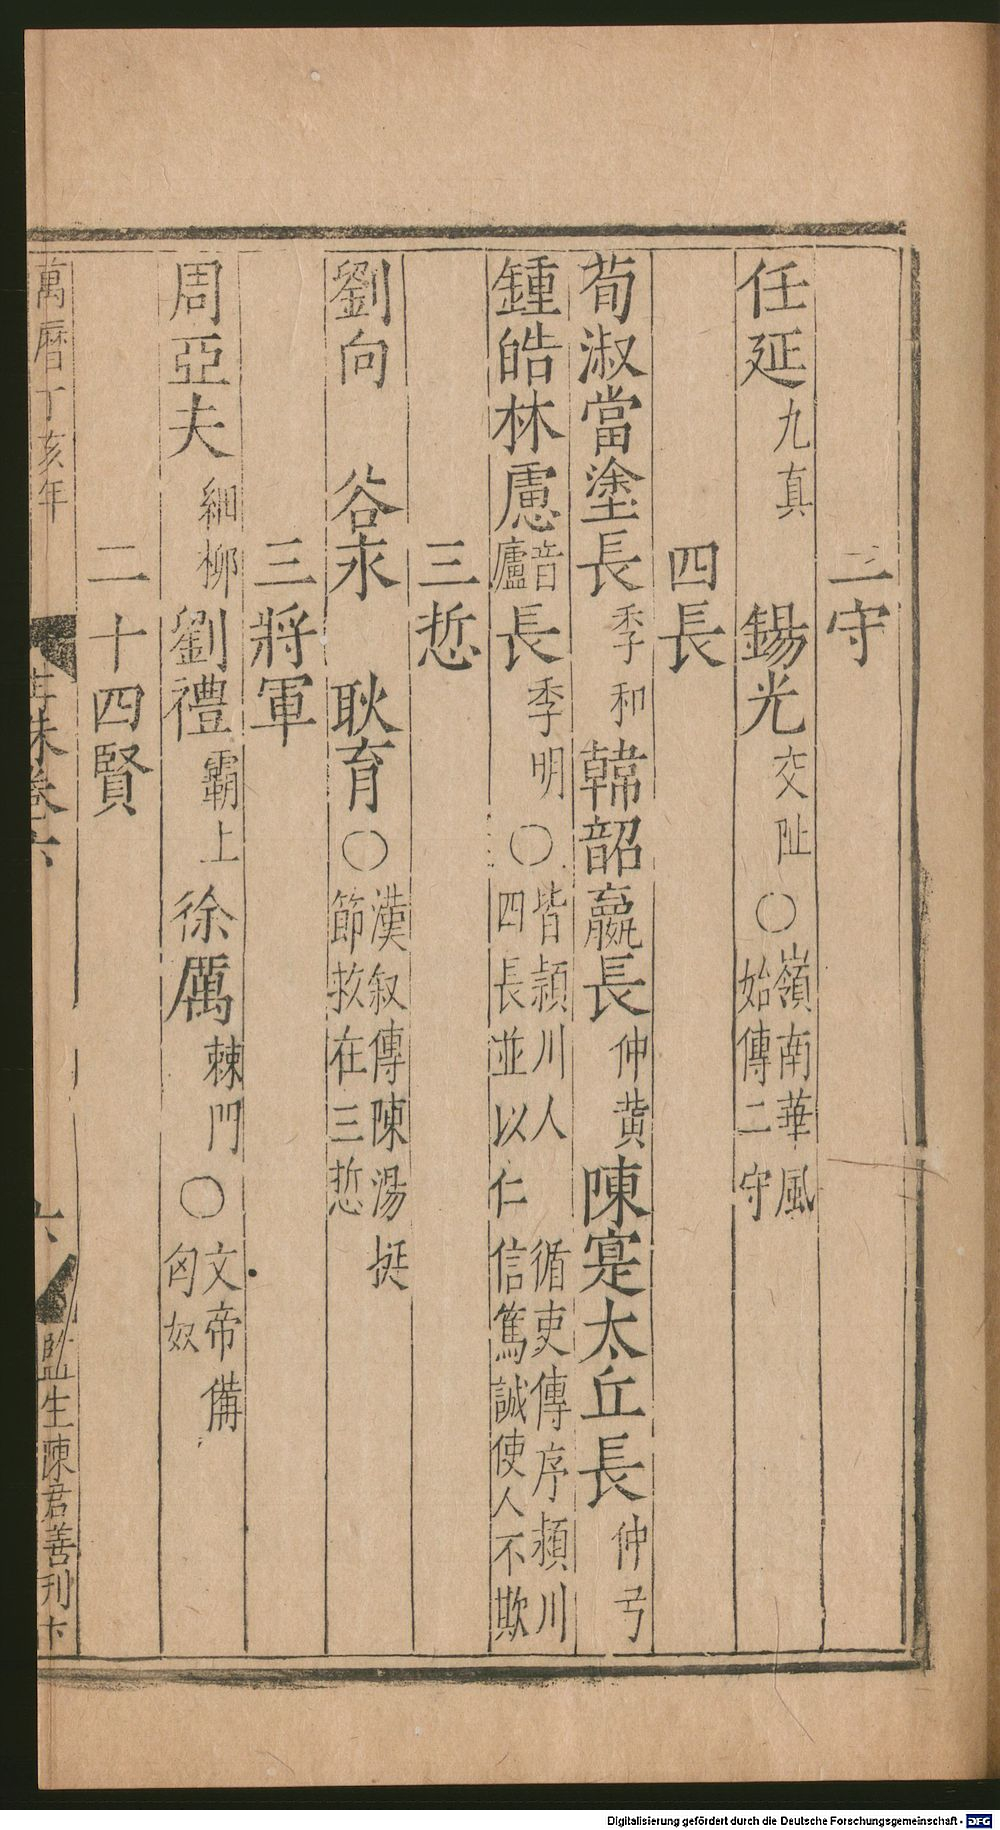 二守
任延九真 錫光交阯○嶺南華風始傳二守
四長
荀淑當塗長季和 韓韶嬴長仲黄 陳寔太丘長仲弓
鍾皓林慮音廬長季明○皆潁川人 循吏傳序潁川四長並以仁信篤誠使人不欺
三悊
劉向 谷永 耿育○漢叙傳陳湯挺節救在三悊
三將軍
周亞夫細柳 劉禮霸上 徐厲棘門○文帝備匈奴
二十四賢
萬曆丁亥年 卷六 六 監生陳君善刊
Digitalisierung gefördert durch die Deutsche Forschungsgemeinschaft - DFG